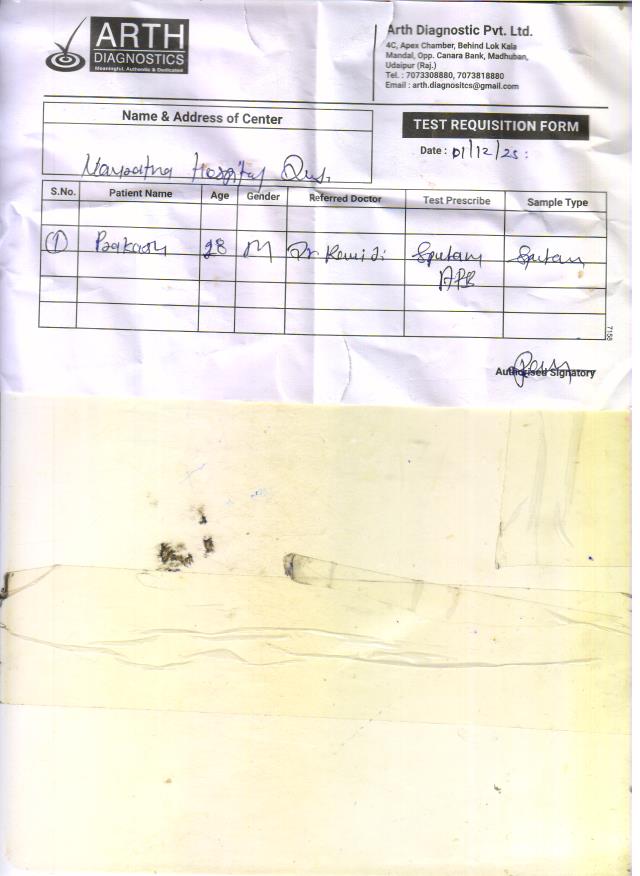 ARTH
DIAGNOSTICS
Meaningful, Authentic & Dedicated
Arth Diagnostic Pvt. Ltd.
4C, Apex Chamber, Behind Lok Kala
Mandal, Opp. Canara Bank, Madhuban,
Udaipur (Raj.)
Tel. : 7073308880, 7073818880
Email : arth.diagnositcs@gmail.com
Name & Address of Center
TEST REQUISITION FORM
Date : 01/12/25
Hospital
S.No. Patient Name Age Gender Referred Doctor Test Prescribe Sample Type
1 28 M Dr Sputam Sputam
AFB
7158
Authorised Signatory